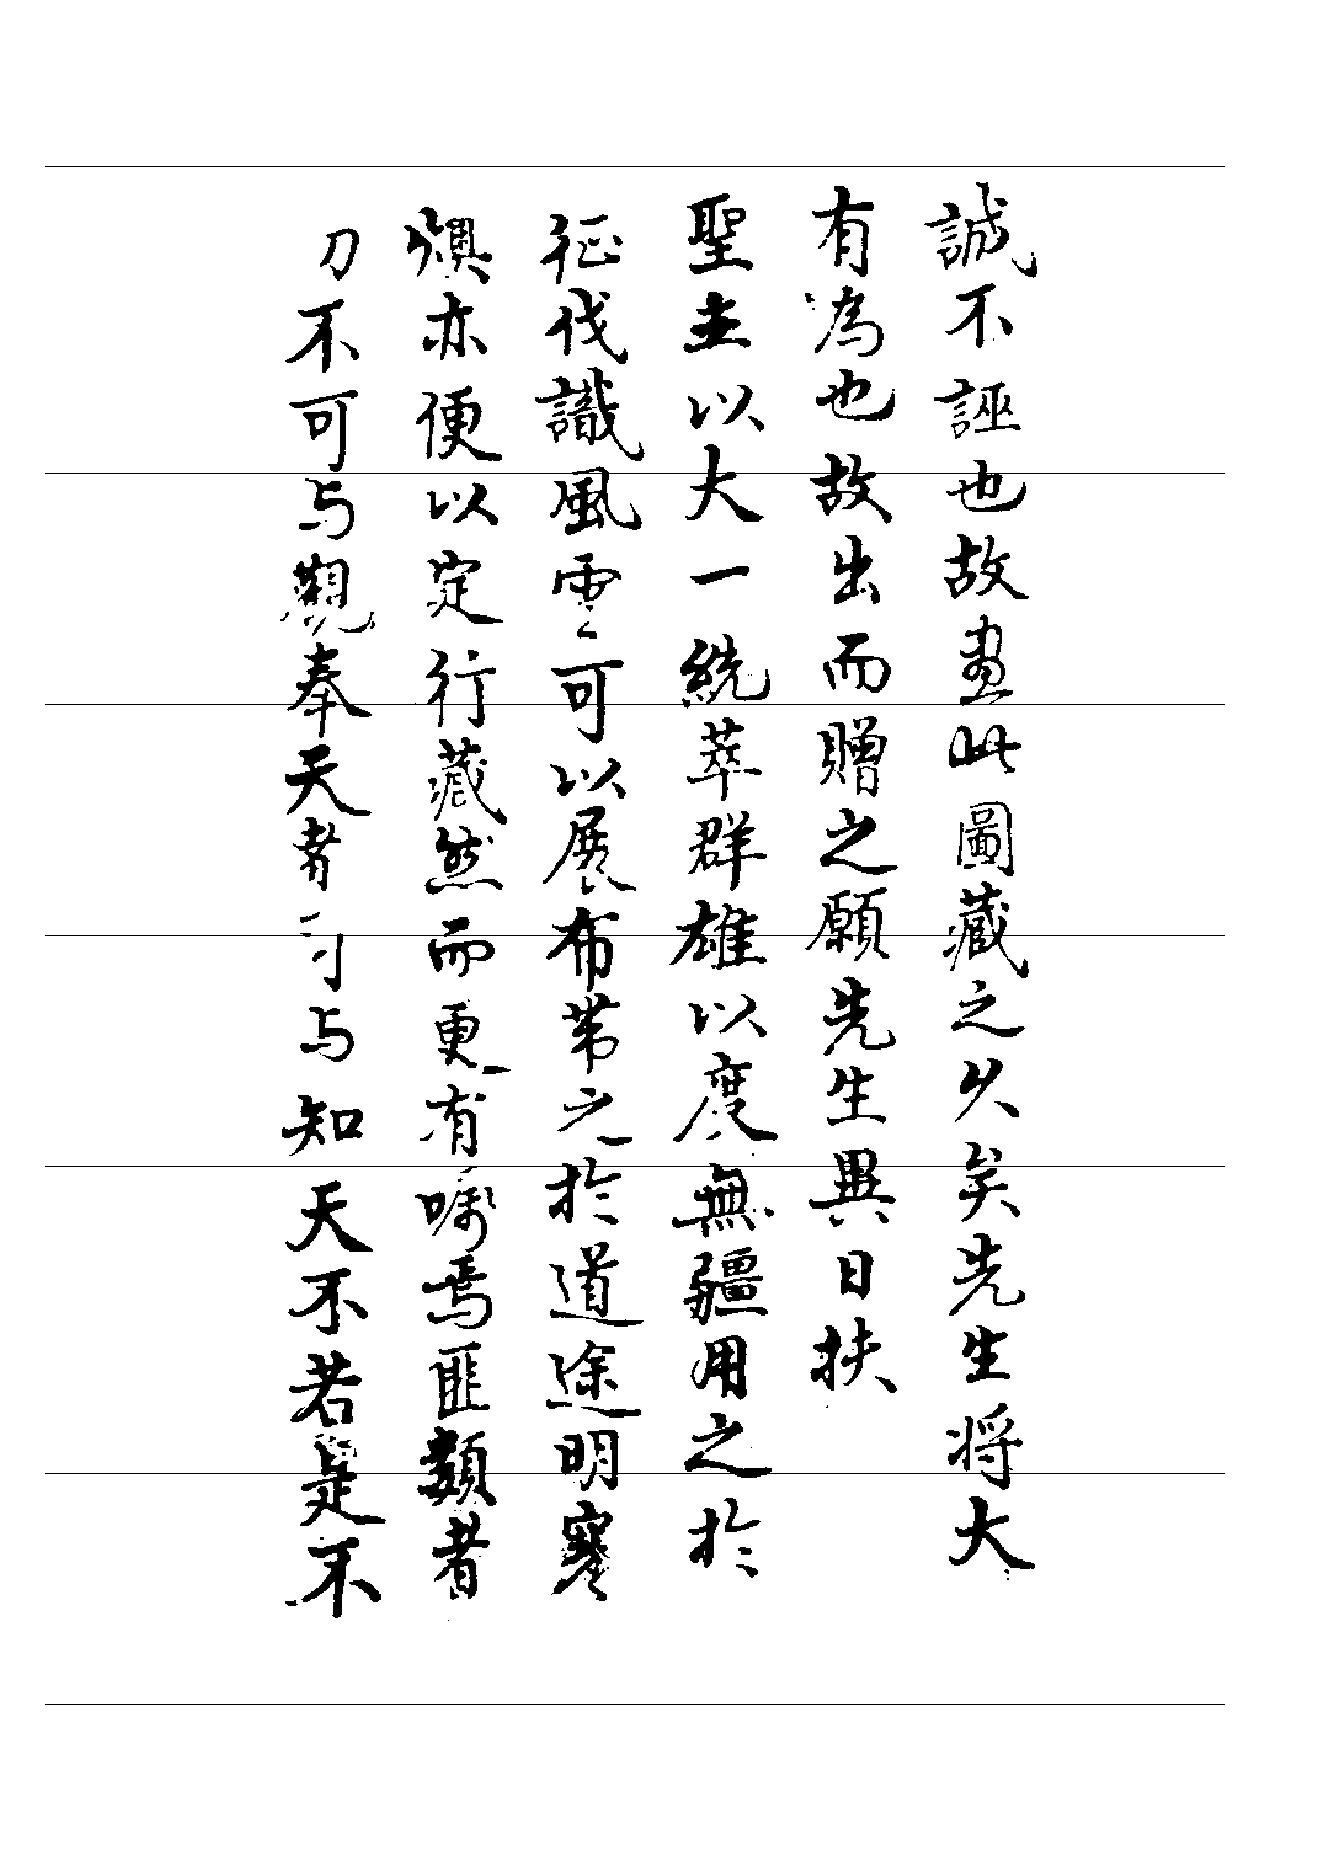 誠不誣也故畫此圖藏之久矣先生将大
有為也故出而贈之願先生異日扶
聖主以大一統萃群雄以度無疆用之於
征伐識風雲可以展布帶之於道途明寒
燠亦便以定行藏然而更有嘱焉匪類者
不可与觀奉天者可与知天不若是不